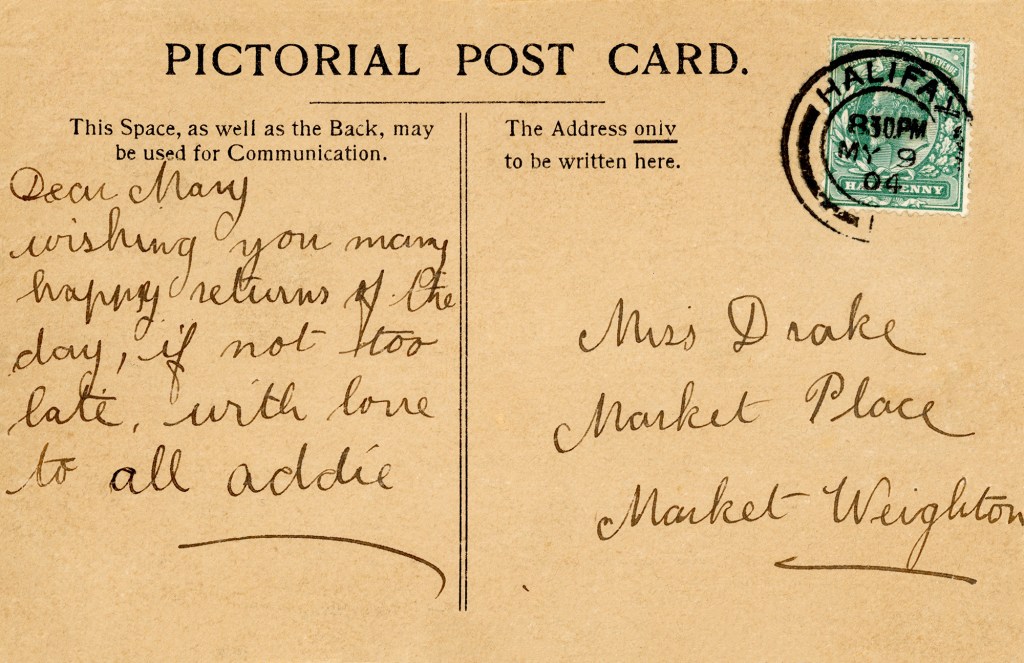 PICTORIAL POST CARD.
This Space, as well as the Back, may
be used for Communication.
The Address only
to be written here.
HALIFAX
830PM
MY 9
04
HALFPENNY
Dear Mary
wishing you many
happy returns of the
day, if not too
late, with love
to all addie
Miss Drake
Market Place
Market Weighton